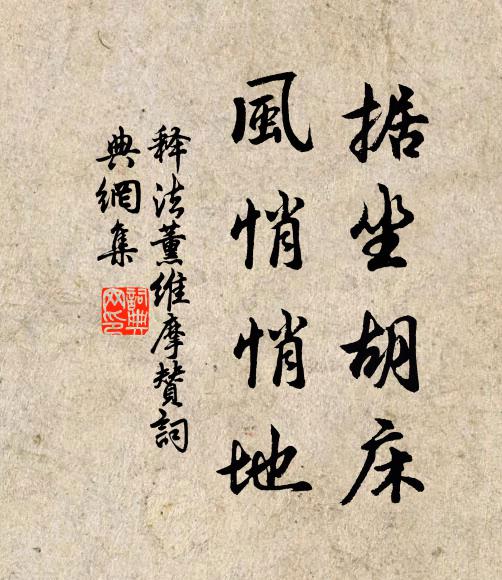 据坐胡床
風悄悄地
释法薰维摩賛詞
典網集
詞典
网印